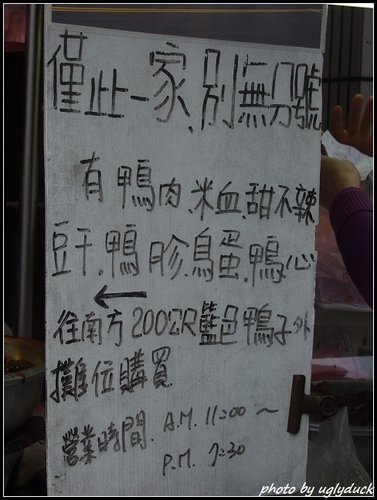 僅止一家、別無分號
有鴨肉.米血.甜不辣
豆干.鴨胗.鳥蛋.鴨心
←
往南方200公尺藍色鴨子外
攤位購買
營業時間. A.M. 11:00 ~
P.M. 7:30
photo by uglyduck